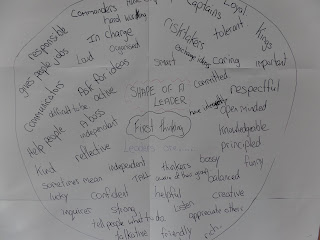 Commanders
Captains
Loyal
hard working
Kings
responsible
In charge
risktakers
tolerant
gives people jobs
Organised
exchange ideas
Loud
smart
caring
important
Ask for ideas
committed
communicators
active
SHAPE OF A
LEADER
respectful
difficult to be
A boss
have strengths
openminded
help people
independent
First thinking
knowledgeable
reflective
Leaders are...
principled
Kind
independent
thinkers
bossy
funny
sometimes mean
balanced
lucky
confident
helpful
creative
inquirers
strong
Listen
appreciate others
tell people what to do
talkative
friendly
rich